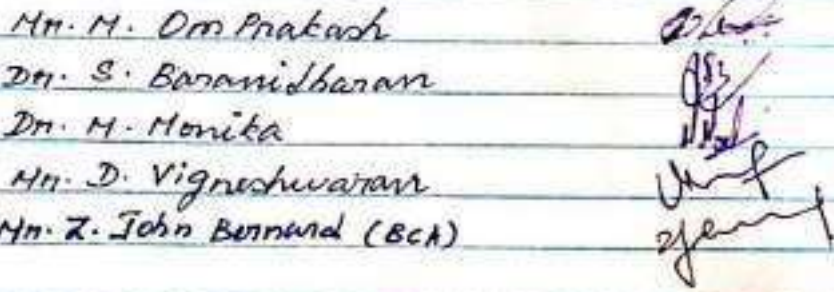 Mr. M. Om Prakash
Dr. S. Baranidharan
Dr. M. Monika
Mr. D. Vigneshwaran
Mr. Z. John Bernard (BCA)